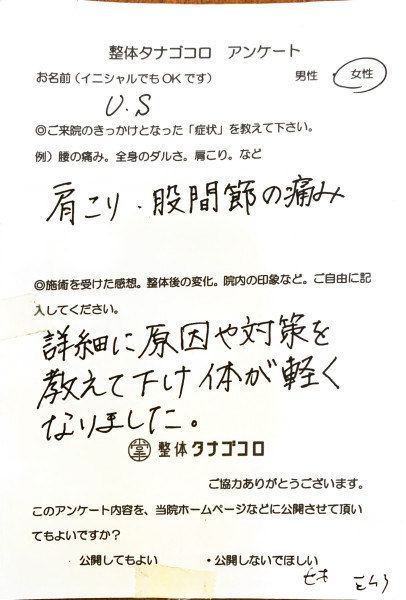 整体タナゴコロ アンケート
お名前(イニシャルでもOKです) 男性 ・ 女性
U.S
◎ご来院のきっかけとなった「症状」を教えて下さい。
例)腰の痛み。全身のダルさ。肩こり。など
肩こり・股間節の痛み
◎施術を受けた感想。整体後の変化。院内の印象など。ご自由に記
入してください。
詳細に原因や対策を
教えて下け体が軽く
なりました。
掌 整体タナゴコロ
ご協力ありがとうございます。
このアンケート内容を、当院ホームページなどに公開させて頂い
てもよいですか?
公開してもよい ・公開しないでほしい